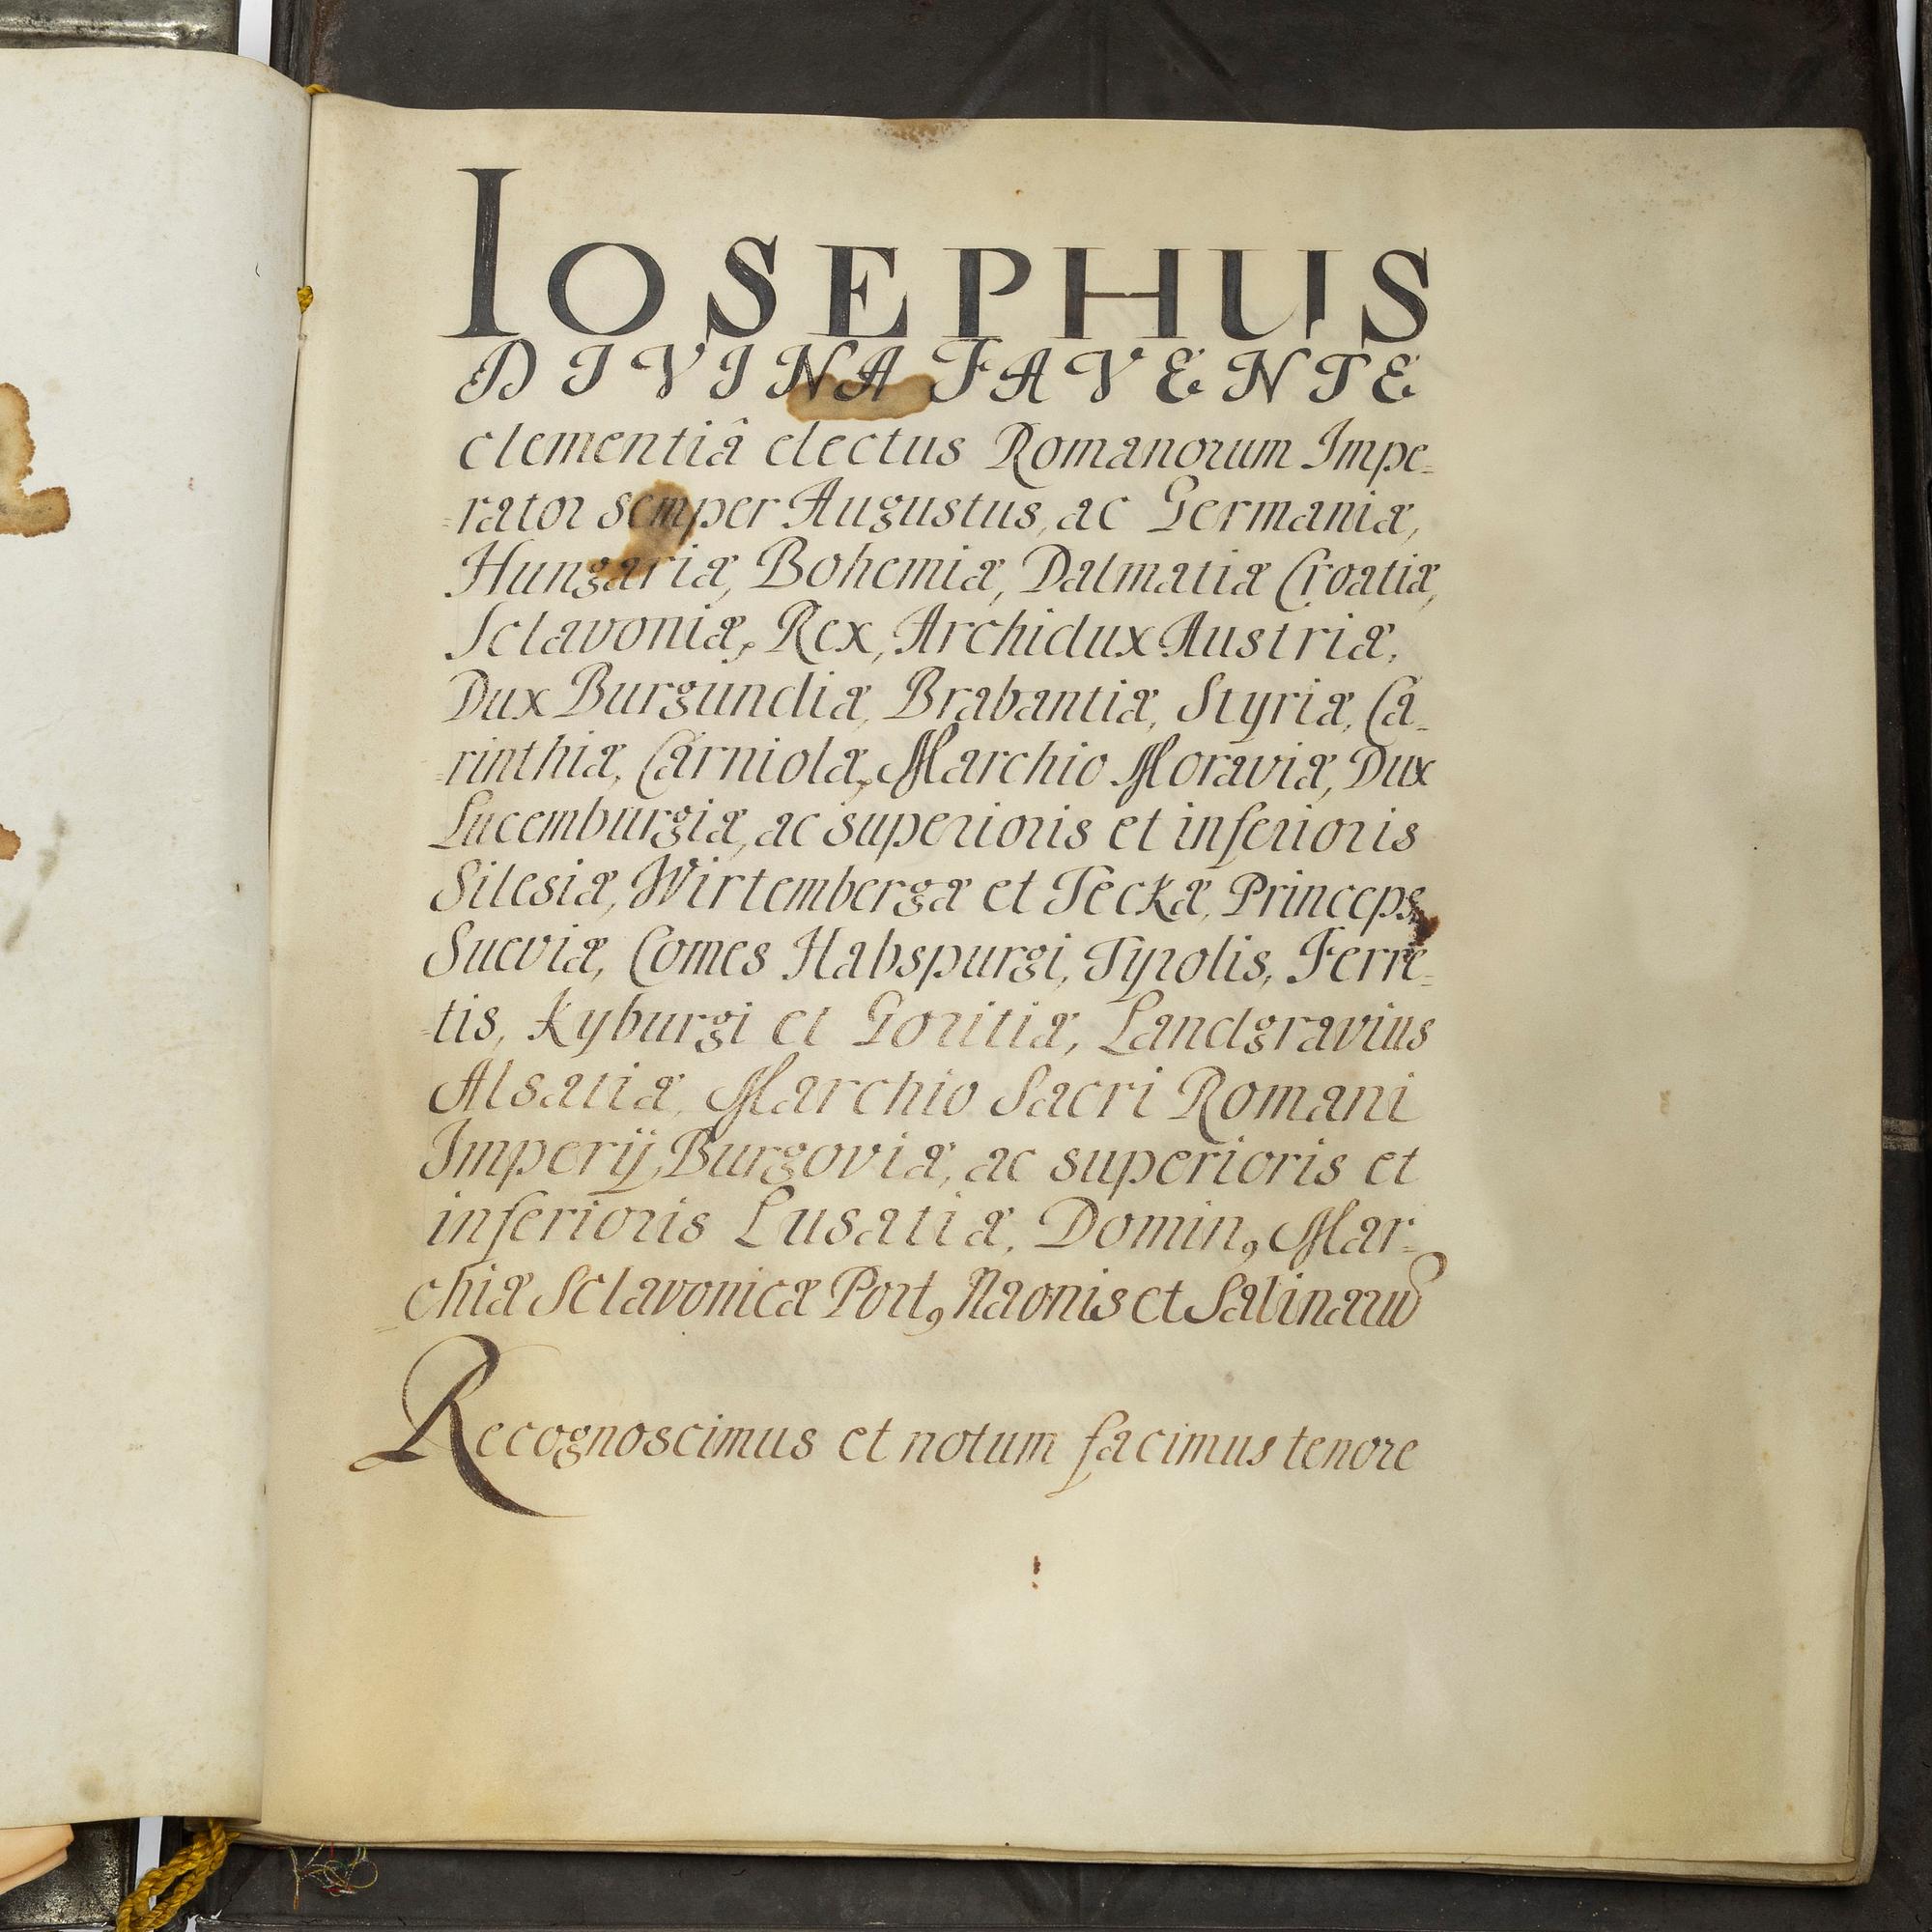 IOSEPHUS
DIVINA FAVENTE
clementiâ electus Romanorum Impe-
-rator semper Augustus, ac Germaniæ,
Hungariæ, Bohemiæ, Dalmatiæ Croatiæ,
Sclavoniæ, Rex, Archidux Austriæ,
Dux Burgundiæ, Brabantiæ, Styriæ, Ca-
-rinthiæ, Carniolæ, Marchio Moraviæ, Dux
Lucemburgiæ, ac superioris et inferioris
Silesiæ, Wirtembergæ et Teckæ, Princeps
Sueviæ, Comes Habspurgi, Tyrolis, Ferre-
-tis, Kyburgi et Goritiæ, Landgravius
Alsatiæ, Marchio Sacri Romani
Imperij, Burgoviæ, ac superioris et
inferioris Lusatiæ, Dominꝰ Mar-
-chiæ Sclavonicæ Portꝰ Naonis et Salinarū
Recognoscimus et notum facimus tenore